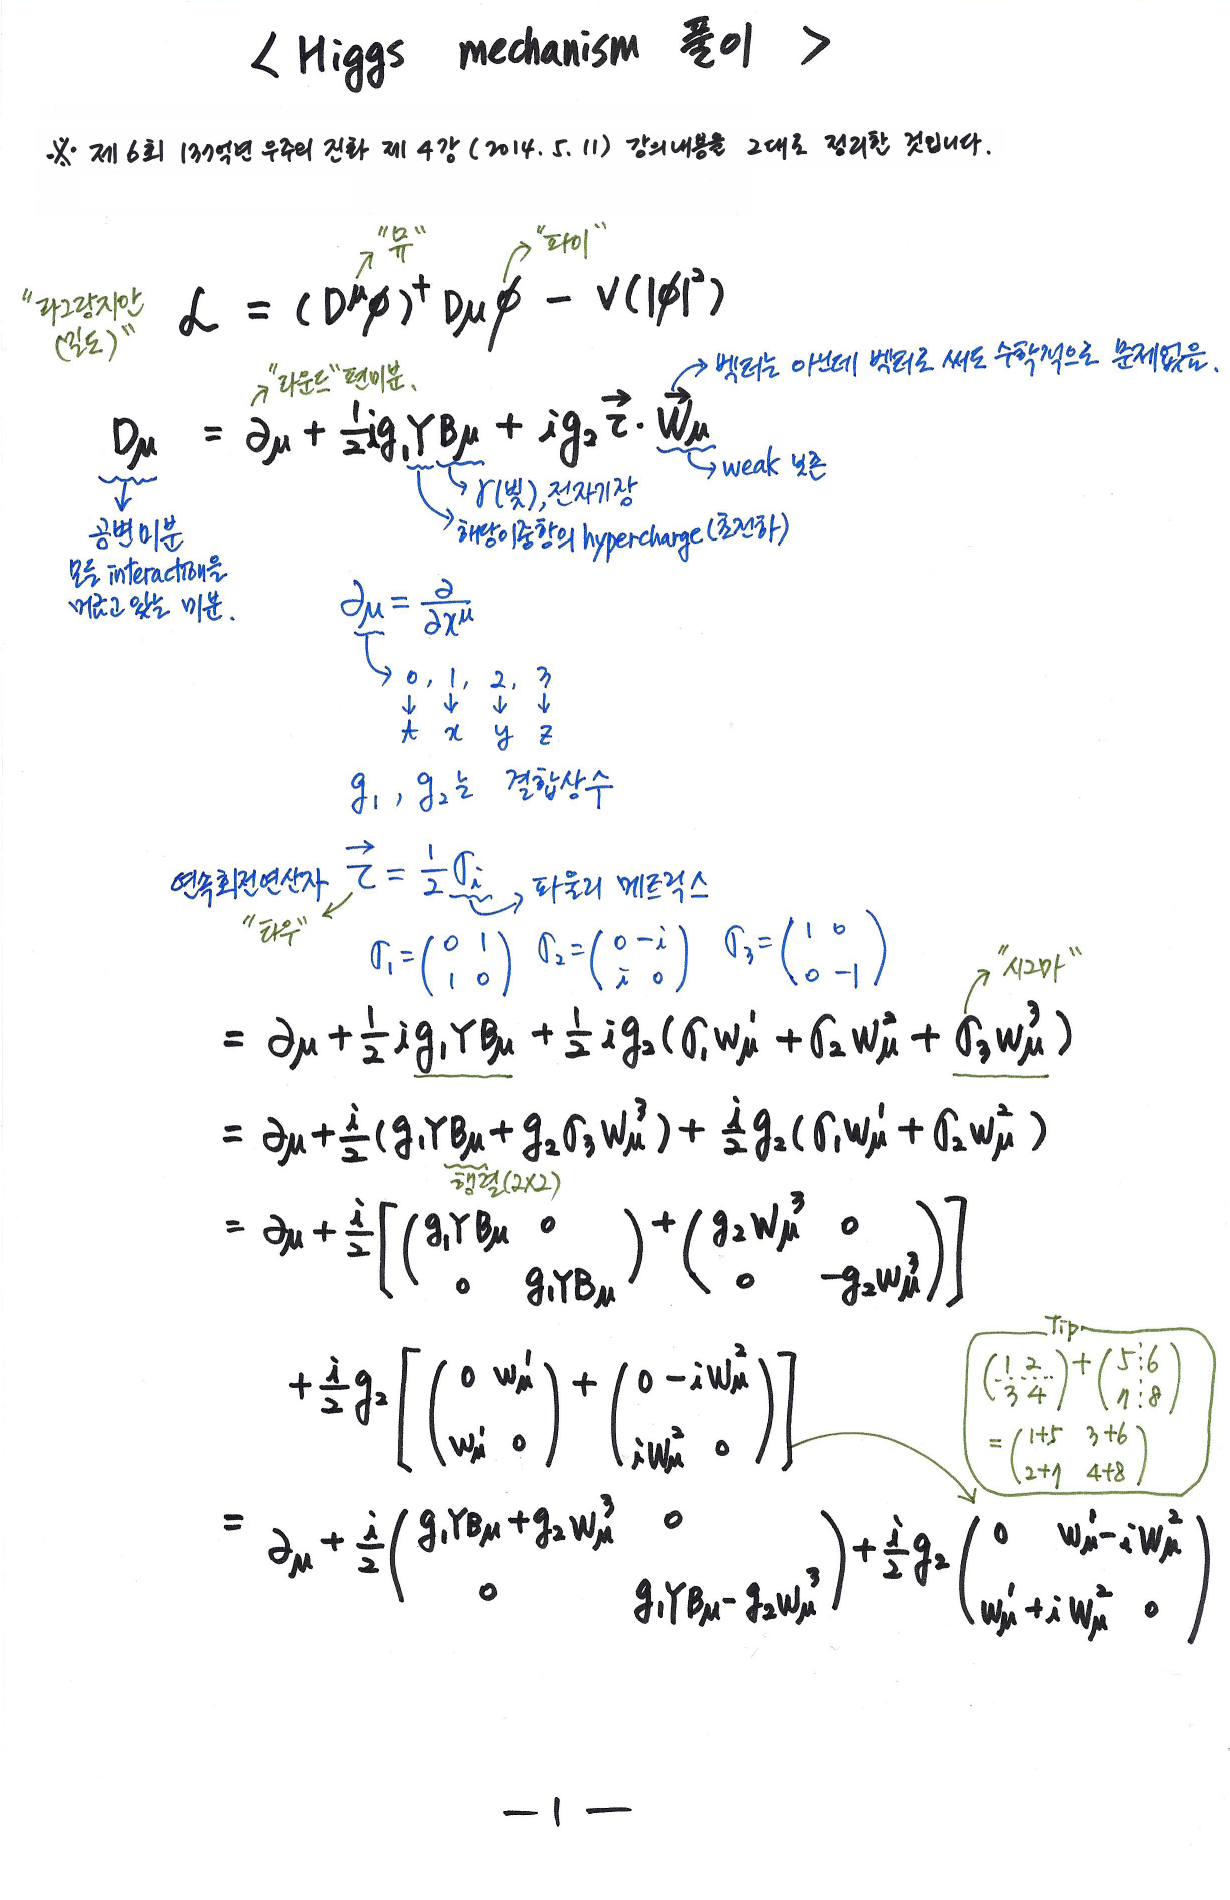 < Higgs mechanism 풀이 >
※ 제6회 137억년 우주의 진화 제4강(2014.5.11) 강의내용을 그대로 정리한 것입니다.
"뮤" "파이"
"라그랑지안 (밀도)" ℒ = (D^μ φ)^† D_μ φ − V(|φ|²)
"라운드" 편미분. 벡터는 아닌데 벡터로 써도 수학적으로 문제없음.
D_μ = ∂_μ + 1/2 i g₁ Y B_μ + i g₂ τ⃗ · W⃗_μ
weak 보존
γ(빛), 전자기장
해당이중항의 hypercharge(초전하)
공변미분
모든 interaction을
머금고 있는 미분.
∂_μ = ∂/∂x^μ
0, 1, 2, 3
↓ ↓ ↓ ↓
t x y z
g₁, g₂는 결합상수
연속회전연산자 τ⃗ = 1/2 σ_i → 파울리 메트릭스
"타우"
σ₁ = (0 1 / 1 0) σ₂ = (0 −i / i 0) σ₃ = (1 0 / 0 −1)
"시그마"
= ∂_μ + 1/2 i g₁ Y B_μ + 1/2 i g₂ (σ₁ W_μ^1 + σ₂ W_μ^2 + σ₃ W_μ^3)
= ∂_μ + i/2 (g₁ Y B_μ + g₂ σ₃ W_μ^3) + i/2 g₂ (σ₁ W_μ^1 + σ₂ W_μ^2)
행렬(2×2)
= ∂_μ + i/2 [ (g₁YB_μ 0 / 0 g₁YB_μ) + (g₂W_μ^3 0 / 0 −g₂W_μ^3) ]
+ i/2 g₂ [ (0 W_μ^1 / W_μ^1 0) + (0 −iW_μ^2 / iW_μ^2 0) ]
Tip
(1 2 / 3 4) + (5 6 / 7 8)
= (1+5 3+6 / 2+7 4+8)
= ∂_μ + i/2 (g₁YB_μ + g₂W_μ^3 0 / 0 g₁YB_μ − g₂W_μ^3) + i/2 g₂ (0 W_μ^1 − iW_μ^2 / W_μ^1 + iW_μ^2 0)
− 1 −